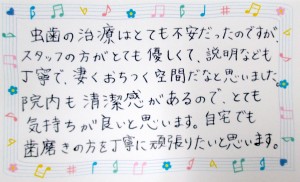 虫歯の治療はとても不安だったのですが、
スタッフの方がとても優しくて、説明なども
丁寧で、凄くおちつく空間だなと思いました。
院内も清潔感があるので、とても
気持ちが良いと思います。自宅でも
歯磨きの方を丁寧に頑張りたいと思います。